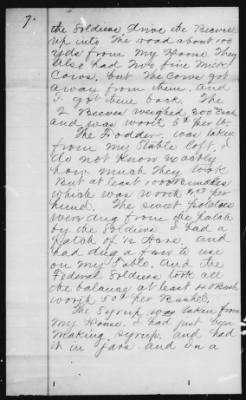 7.
the Soldiers drove the Beeves
up into the road about 100
yds from my Home They
Also had two fine Milk
Cows, but the Cows got
away from them, and
I got them back. The
2 Beeves weighed 300 Each
and was worth 5¢ per lb
The Fodder was taken
from my Stable loft, I
do not know exactly
how much they took
But at least 1000 Bundles
which was worth
hund. The sweet potatoes
were dug from the patch
by the Soldiers, I had a
Patch of ½ Acre, and
had dug a few to use
on my Table, and the
Federal Soldiers took all
the balance at least 40 Bush
worth 50¢ per Bushel.
The Syrup was taken from
My Home. I had just been
Making syrup, and had
it in Jars and in a